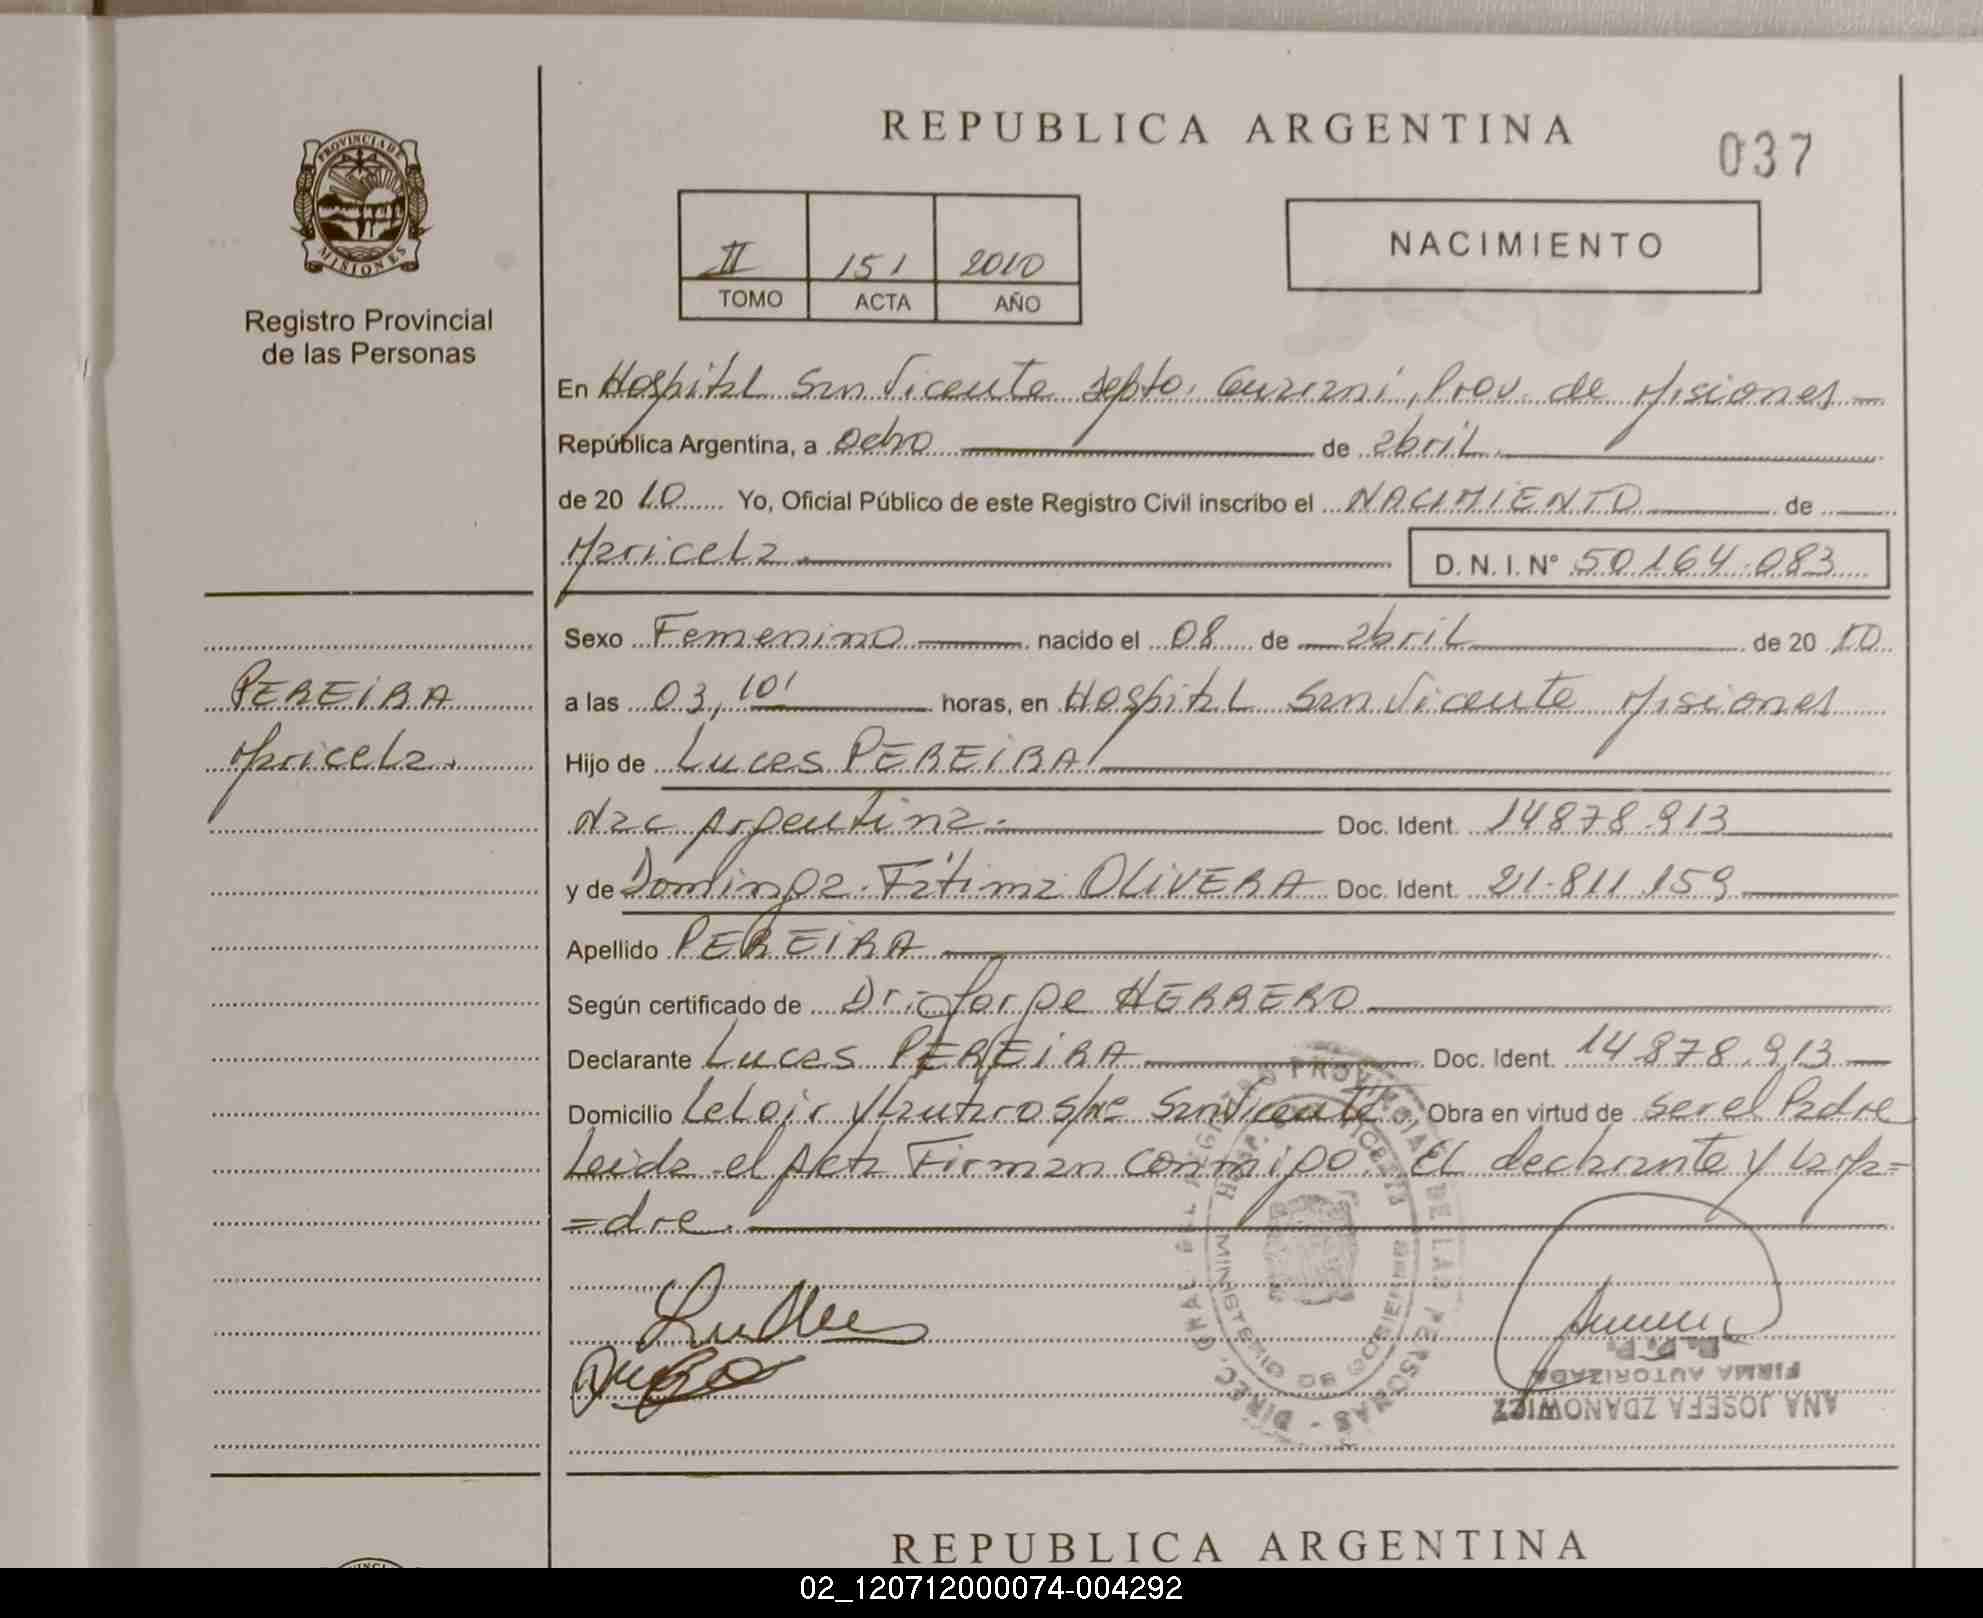 PROVINCIA DE
MISIONES
Registro Provincial
de las Personas
PEREIRA
Maricela.
REPUBLICA ARGENTINA
037
II 151 2010
TOMO ACTA AÑO
NACIMIENTO
En Hospital San Vicente Depto. Guaraní, Prov. de Misiones
República Argentina, a Ocho de abril
de 2010 Yo, Oficial Público de este Registro Civil inscribo el NACIMIENTO de
Maricela. D. N. I. N° 50.164.083
Sexo Femenino nacido el 08 de abril de 2010
a las 03,10' horas, en Hospital San Vicente Misiones
Hijo de Lucas PEREIRA
Nac Argentina. Doc. Ident. 14.878.913
y de Dominga Fátima OLIVERA Doc. Ident. 21.811.159
Apellido PEREIRA
Según certificado de Dr. Jorge HERRERO
Declarante Lucas PEREIRA Doc. Ident. 14.878.913
Domicilio Leloir y Lautaro s/nº San Vicente Obra en virtud de ser el Padre
Leida el Acta Firman conmigo El declarante y la ma=
=dre.
DIREC. GRAL. DEL REGISTRO PROVINCIAL DE LAS PERSONAS
MINISTERIO DE GOBIERNO
FIRMA AUTORIZADA
ANA JOSEFA ZDANOWICZ
REPUBLICA ARGENTINA
02_120712000074-004292